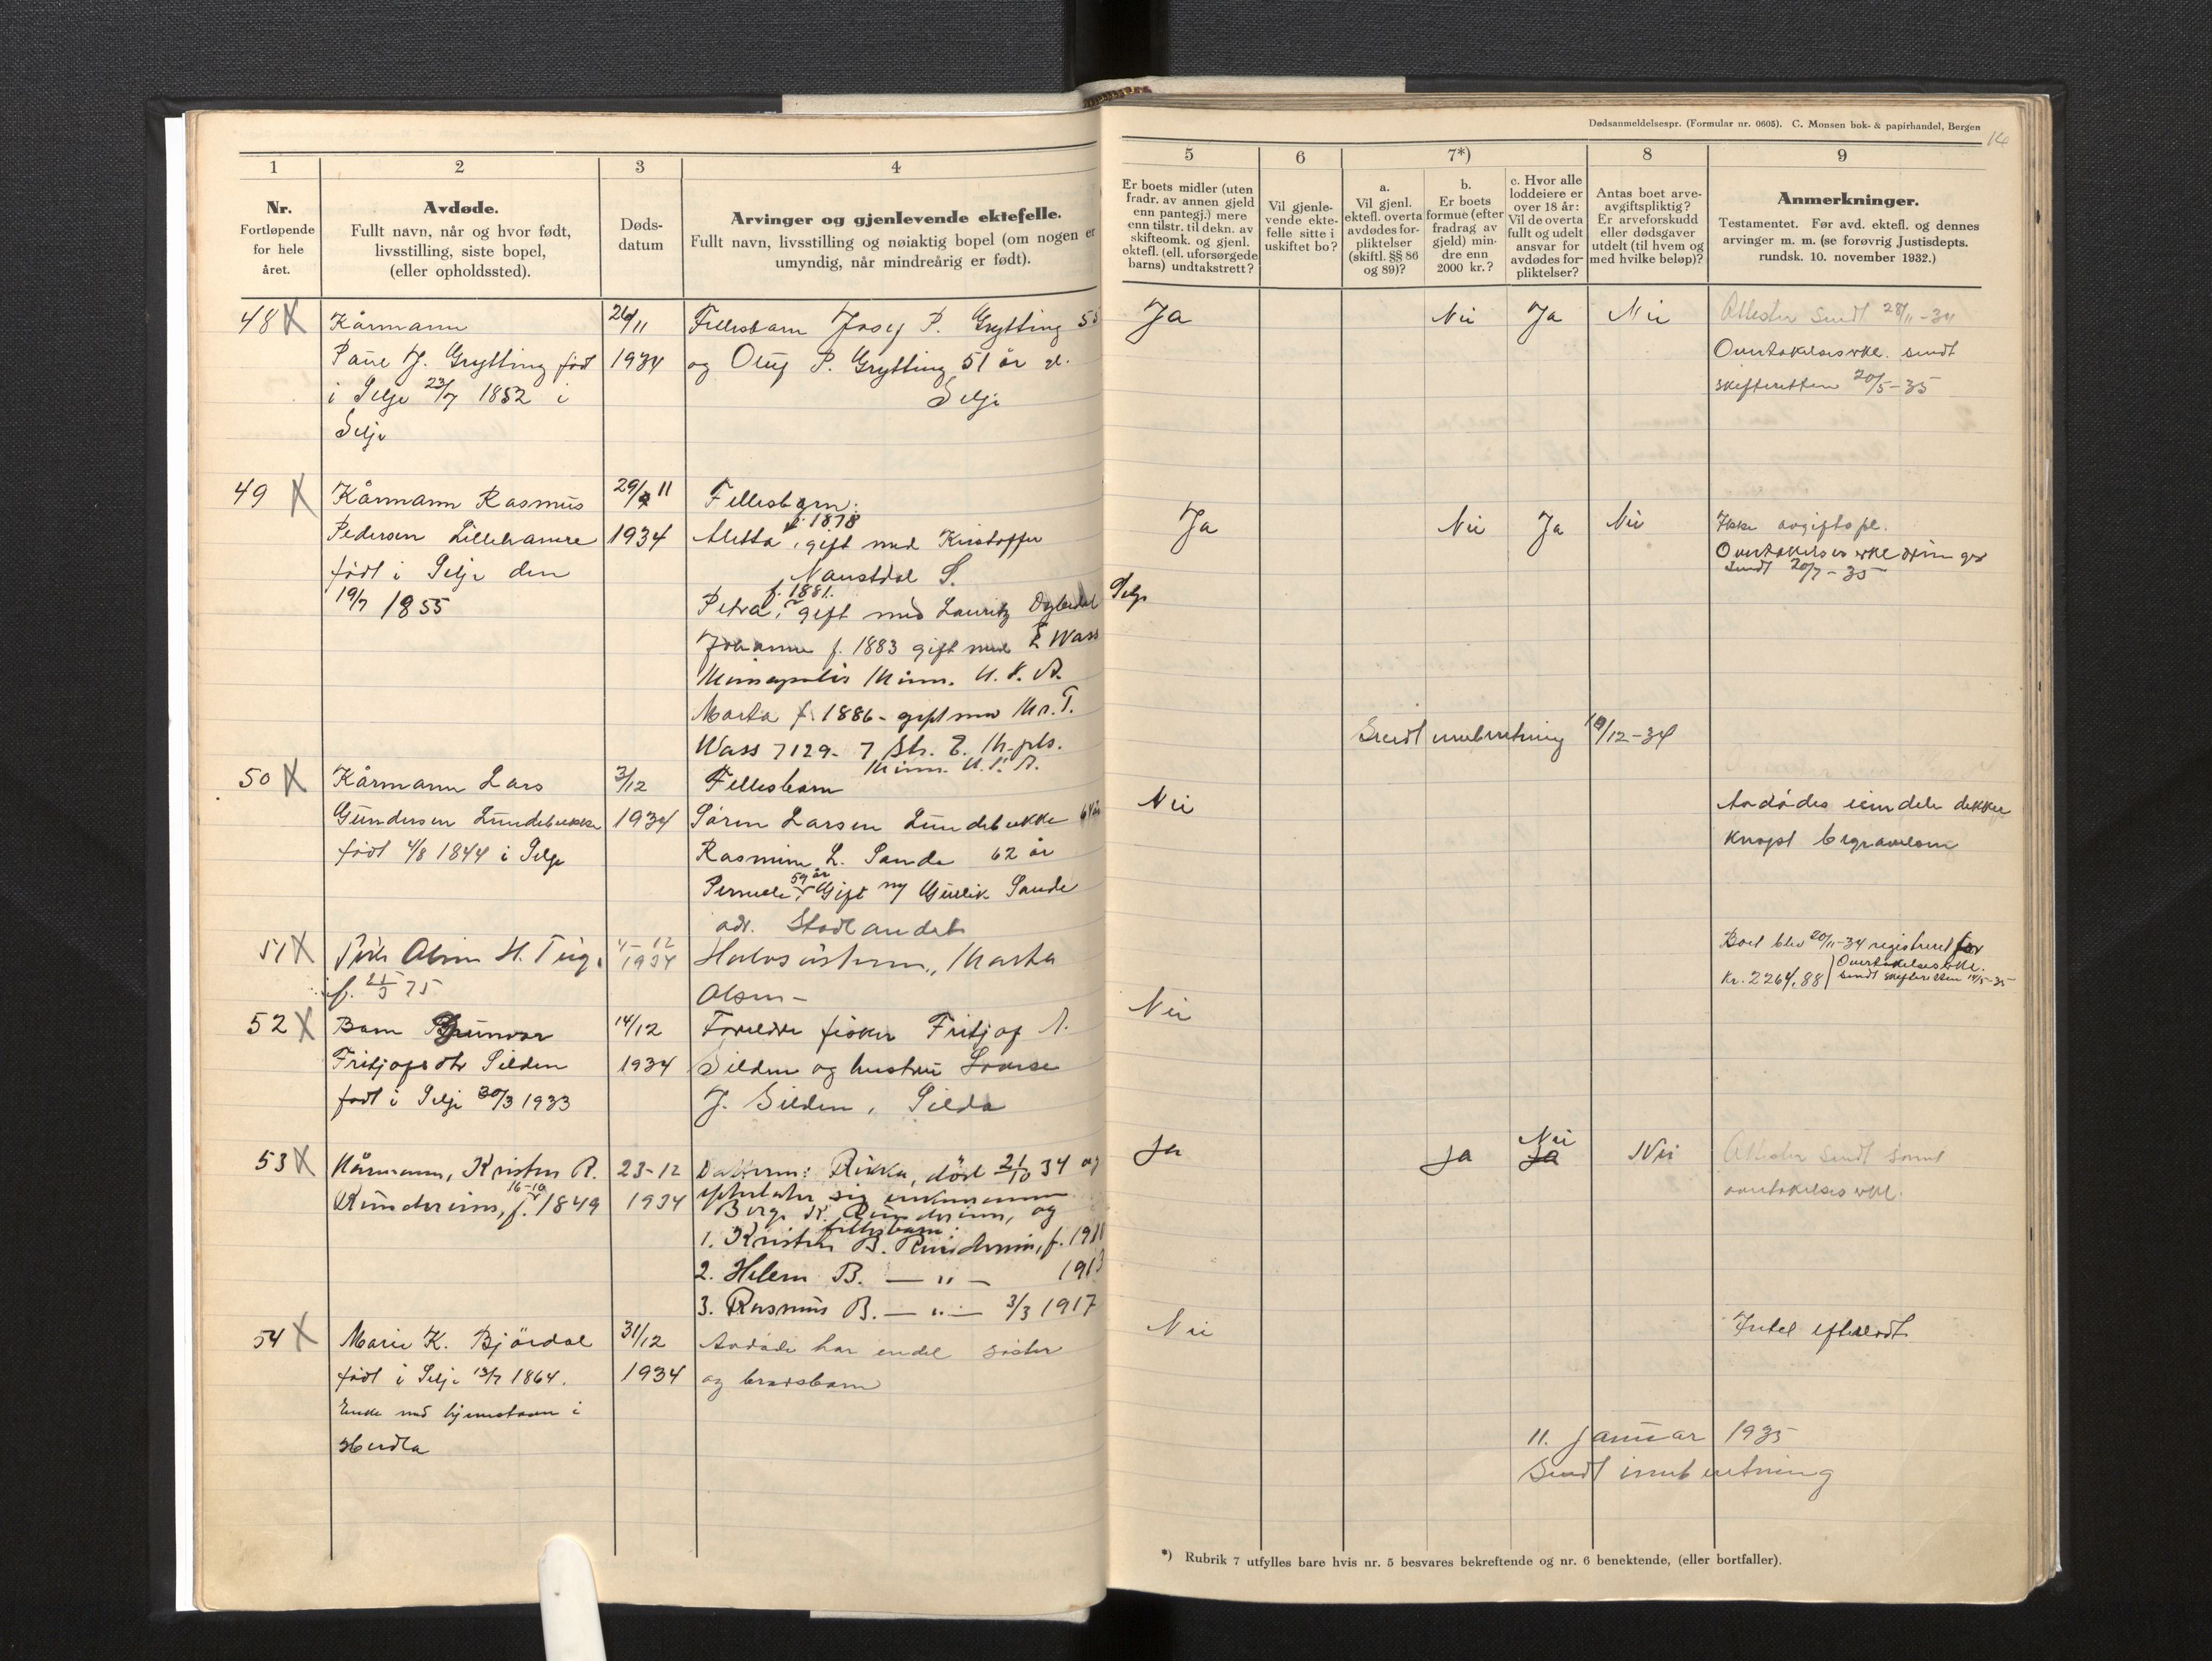 Dødsanmeldelsespr. (Formular nr. 0605). C. Monsen bok- & papirhandel, Bergen
14
1
2
3
4
5
6
7*)
8
9
Nr.
Fortløpende
for hele
året.
Avdøde.
Fullt navn, når og hvor født,
livsstilling, siste bopel,
(eller opholdssted).
Døds-
datum
Arvinger og gjenlevende ektefelle.
Fullt navn, livsstilling og nøiaktig bopel (om nogen er
umyndig, når mindreårig er født).
Er boets midler (uten
fradr. av annen gjeld
enn pantegj.) mere
enn tilstr. til dekn. av
skifteomk. og gjenl.
ektefl. (ell. uforsørgede
barns) undtakstrett?
Vil gjenle-
vende ekte-
felle sitte i
uskiftet bo?
a.
Vil gjenl.
ektefl. overta
avdødes for-
pliktelser
(skiftl. §§ 86
og 89)?
b.
Er boets
formue (efter
fradrag av
gjeld) min-
dre enn
2000 kr.?
c. Hvor alle
loddeiere er
over 18 år:
Vil de overta
fullt og udelt
ansvar for
avdødes for-
pliktelser?
Antas boet arve-
avgiftspliktig?
Er arveforskudd
eller dødsgaver
utdelt (til hvem og
med hvilke beløp)?
Anmerkninger.
Testamentet. Før avd. ektefl. og dennes
arvinger m. m. (se forøvrig Justisdepts.
rundsk. 10. november 1932.)
48 X
Kårmann
Paul J. Grytting født
i Selje 23/7 1852 i
Selje
26/11
1934
Fellesbarn Josef P. Grytting 55
og Oluf P. Grytting 51 år gl.
Selje
Ja
Nei
Ja
Nei
Attester sendt 28/11-34
Overtakelseserkl. sendt
skifteretten 20/5-35
49 X
Kårmann Rasmus
Pedersen Lillehamre
født i Selje den
19/7 1855
29/11
1934
Fellesbarn:
f. 1878
Aletta, gift med Kristoffer
Naustdal S.
f. 1881.
Petra, gift med Lauritz
Selje
Johanne f. 1883 gift med E Wass
Minneapolis Minn. U. S. A.
Marta f. 1886 - gift med Mr. T.
Wass 7129 - 7 Str. E. M-pls.
Minn. U. S. A.
Ja
Nei
Ja
Nei
Ikke avgiftspl.
sendt 20/7-35
Sendt innberetning 19/12-34
50 X
Kårmann Lars
Gundersen Lundebrekke
født 4/8 1844 i Selje
3/12
1934
Fellesbarn
Søren Larsen Lundebrekke 64 år
Rasmine L. Sande 62 år
59 år
Pernele, Gift m/ Gullik Sande
adr. Stadlandet
Nei
Avdødes eiendeler dekker
knapt begravelsen
51 X
H. Teig.
f. 21/5 75
4-12
1934
Halvsøsteren, Marta
Olsen -
Boet blev 20/11-34 registreret for
Kr. 2264,88
Overtakelseserkl.
sendt skifteretten 14/5-35
52 X
Barn Gunvor
Fritjofsdtr Silden
født i Selje 30/3 1933
14/12
1934
Foreldre fisker Fritjof A.
Silden og hustru Lovise
J. Silden, Silda
Nei
53 X
Kårmann, Kristen R.
16-10
Rundereim, f. 1849
23-12
1934
Datteren: Rikka, død 21/10 34 og
efterlater sig enkemannen
Berge K. Rundereim, og
fellesbarn:
1. Kristen B. Rundereim, f. 1911
2. Helene B. — " — 1913
3. Rasmus B. — " — 3/3 1917
Ja
Ja
Nei
Ja
Nei
Attester sendt samt
overtakelseserkl.
54 X
Marie K. Bjørdal
født i Selje 13/7 1864.
Enke med hjemstavn i
Herdla
31/12
1934
Avdøde har endel søster
og brorsbarn
Nei
Intet efterladt
11. Januar 1935
Sendt innberetning
*) Rubrik 7 utfylles bare hvis nr. 5 besvares bekreftende og nr. 6 benektende, (eller bortfaller).